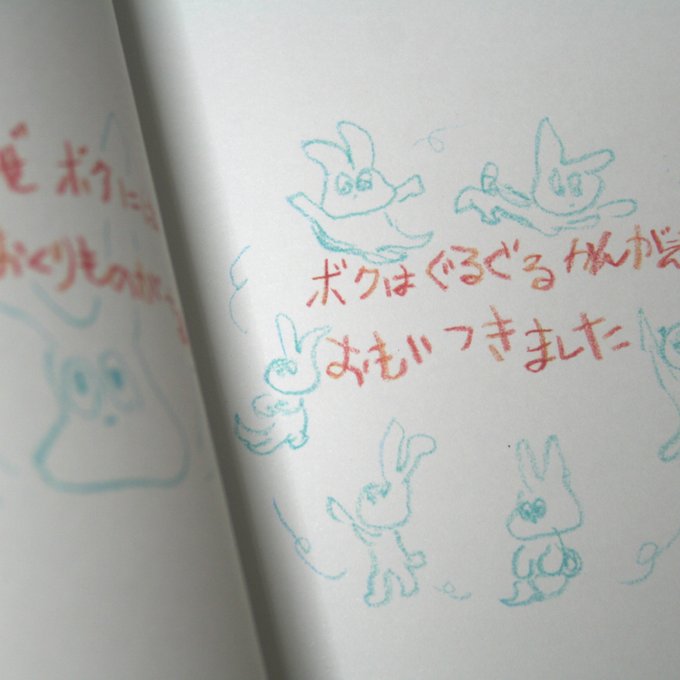 ボクには
おくりものが
ボクはぐるぐるかんがえ
おもいつきました